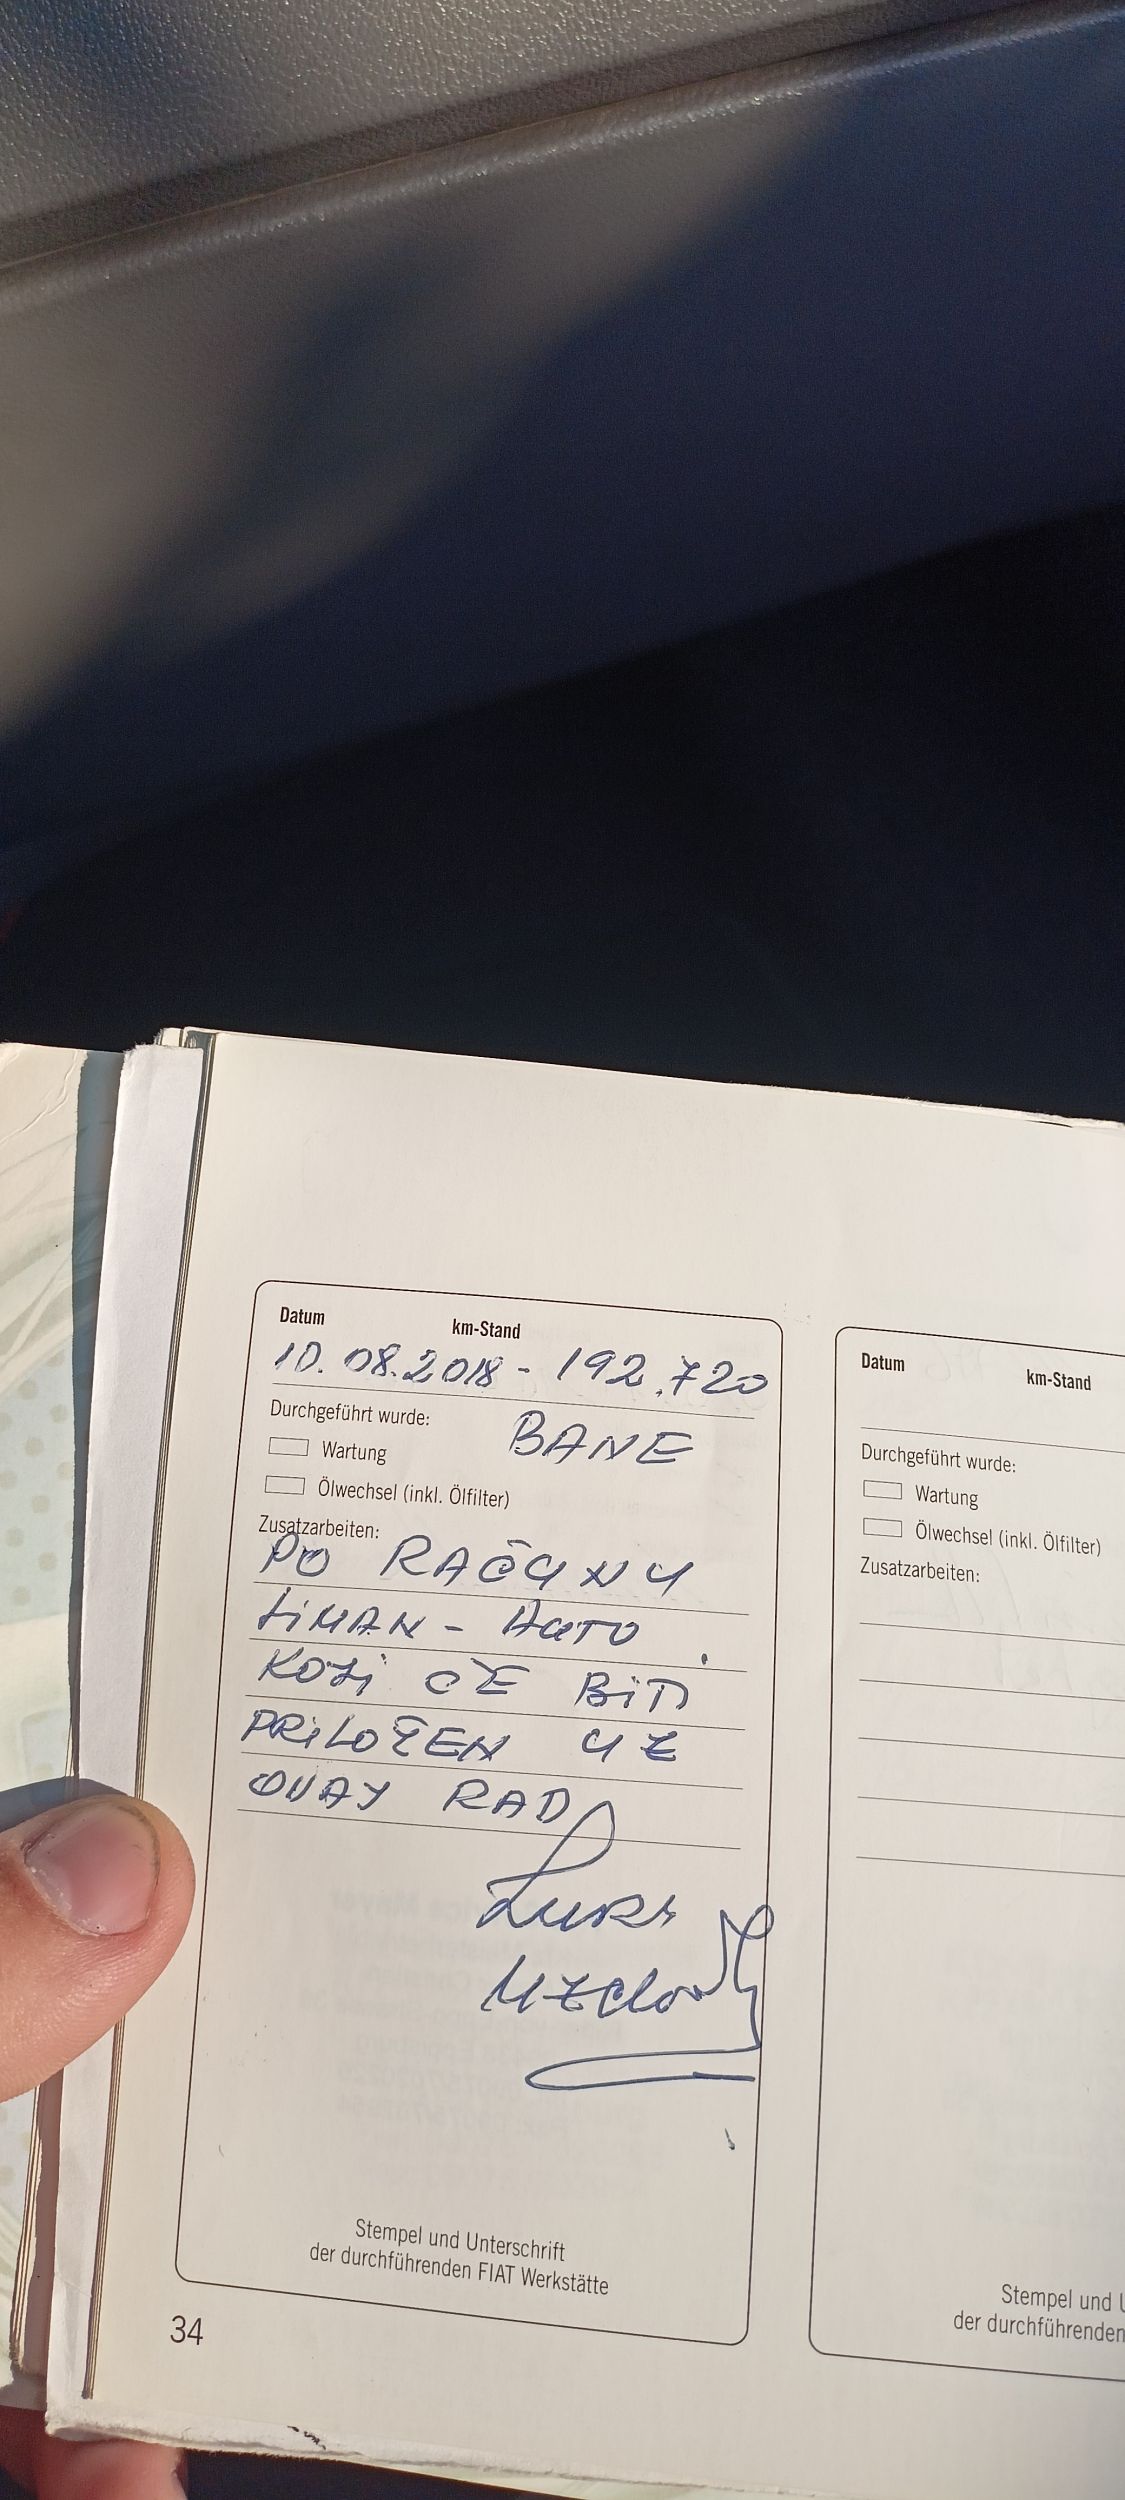 Datum km-Stand
10.08.2018 - 192.720
Durchgeführt wurde:
BANE
Wartung
Ölwechsel (inkl. Ölfilter)
Zusatzarbeiten:
PO RAČUNU
LIMAN - AUTO
KOJI ĆE BITI
PRILOŽEN UZ
OVAJ RAD
Stempel und Unterschrift
der durchführenden FIAT Werkstätte
34
Datum km-Stand
Durchgeführt wurde:
Wartung
Ölwechsel (inkl. Ölfilter)
Zusatzarbeiten:
Stempel und U
der durchführenden